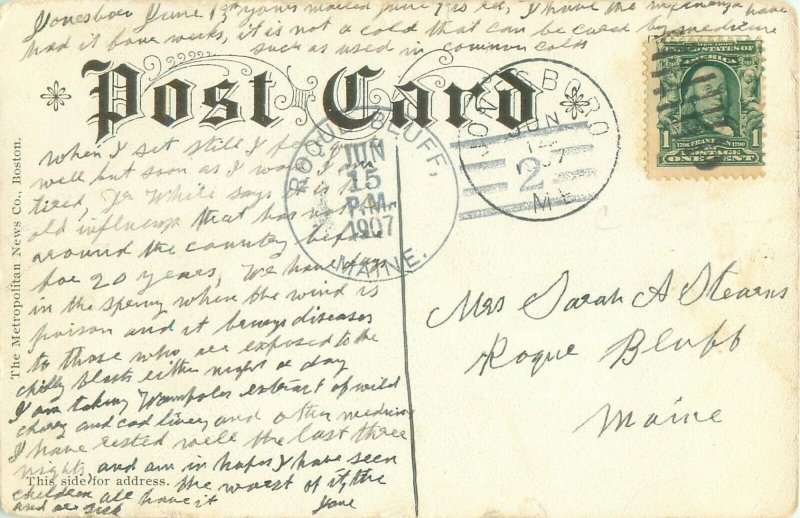 Jonesboro June 13th yours mailed June 7 is rec, I have the influenza have
had it four weeks, it is not a cold that can be cured by medicine
such as used in common colds
Post Card
When I set still I feel
well but soon as I walk I am
tired, Dr White says it is the
old influenza that has not been
around the country before
for 20 years, We have days
in the spring when the wind is
poison and it brings diseases
to those who are exposed to the
chilly blasts either night or day
I am taking Wampoles extract of wild
cherry and cod liver and other medicines
I have rested well the last three
nights and am in hopes I have seen
the worst of it, the
children all have it
and are sick
Jane
This side for address.
The Metropolitan News Co., Boston.
ROQUE BLUFF,
JUN
15
P.M.
1907
MAINE.
JONESBORO
JUN
14
07
2
ME
UNITED STATES OF
AMERICA
1706 FRANKLIN 1790
1 1
POSTAGE
ONE CENT
Mrs Sarah A Stearns
Roque Bluff
Maine